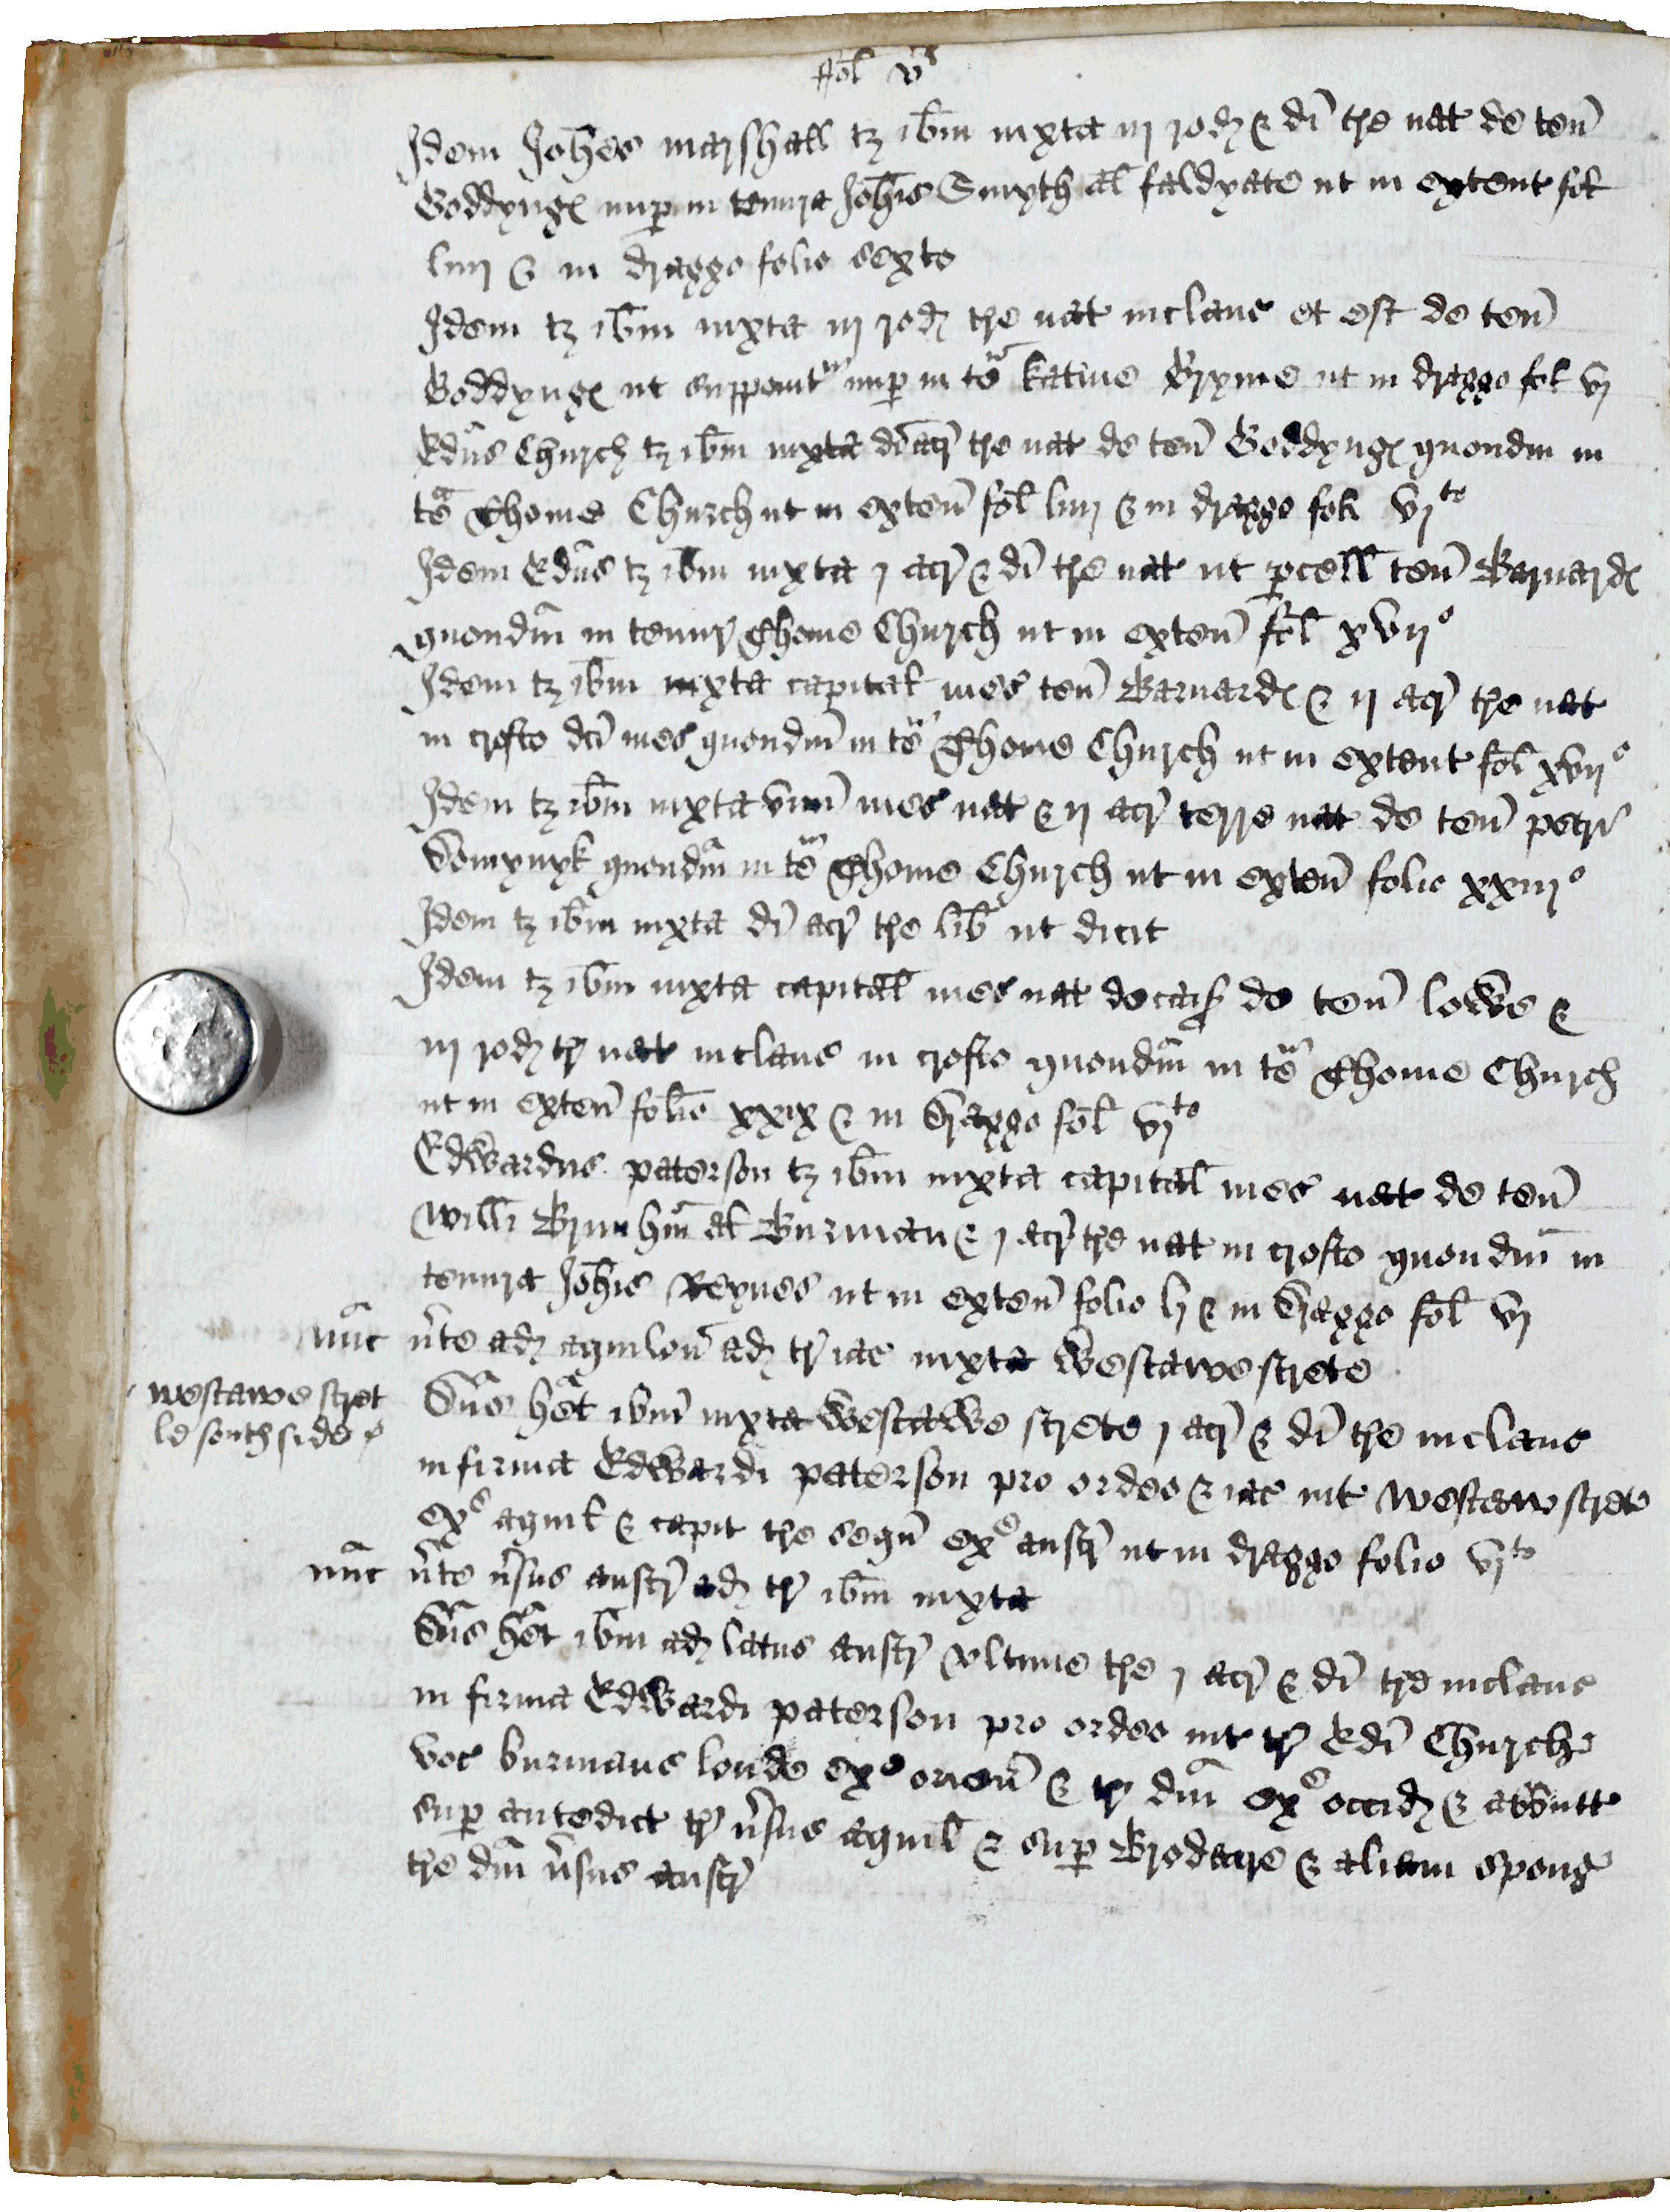 ffol v
Idem Johes marshall tz ibm iuxta iij rod & di tre nat de ten
Goddyng nup in tenura Johis Smyth al faldyate ut in extent fol
liiij & in dragge folio sexto
Idem tz ibm iuxta iij rod tre nat inclaus et est de ten
Goddyng ut supponit nup in te Katine Pryme ut in dragge fol vj
Edus Church tz ibm iuxta di acr tre nat de ten Goddyng quondm in
te Thome Church ut in exten fol liiij & in dragge foli vjto
Idem Edus tz ibm iuxta j acr & di tre nat ut pcell ten Barnard
quondm in tenur Thome Church ut in exten fol xvijo
Idem tz ibm iuxta capital mes ten Barnard & ij acr tre nat
in crofto dci mes quondm in te Thome Church ut in extent fol xvijo
Idem tz ibm iuxta unu mes nat & ij acr terre nat de ten petri
Domynyk quondm in te Thome Church ut in exten folio xxiijo
Idem tz ibm iuxta di acr tre lib ut dicit
Idem tz ibm iuxta capital mes nat decas de ten lowe &
iij rod tr nat inclaus in crofto quondm in te Thome Church
ut in exten folio xxix & in dragge fol vjto
Edwardus paterson tz ibm iuxta capital mes nat de ten
Willi Brunhm al Burman & j acr tre nat in crofto quondm in
tenura Johis Reynes ut in exten folio lj & in dragge fol vj
nunc vte ad aquilon ad tr iac iuxta Westawe strete
westawe stret
le southside
Dns het ibm iuxta Westawe strete j acr & di tre inclaus
in firma Edwardi paterson pro ordeo & iac int Westaw stret
exs aquil & capit tre sequ exs austr ut in dragge folio vjto
nunc vte vsus austr ad tr ibm iuxta
Dns het ibm ad latus austr ultime tre j acr & di tre inclaus
in firma Edwardi paterson pro ordeo int tr Edi Church
voc burmans londe exs orien & tr dni exs occid & abbutt
sup antedict tr vsus aquil & sup Brodacre & aliam spong
tre dni vsus austr